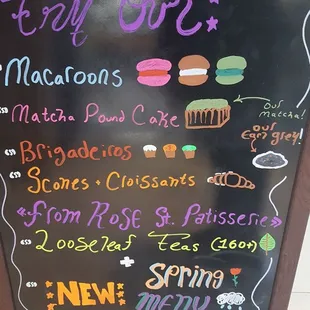 Try Our
Macaroons
Matcha Pound Cake
our
matcha!
our
Earl grey!
Brigadeiros
Scones + Croissants
"from Rose St. Patisserie"
Looseleaf Teas (160+)
+
NEW
Spring
MENU